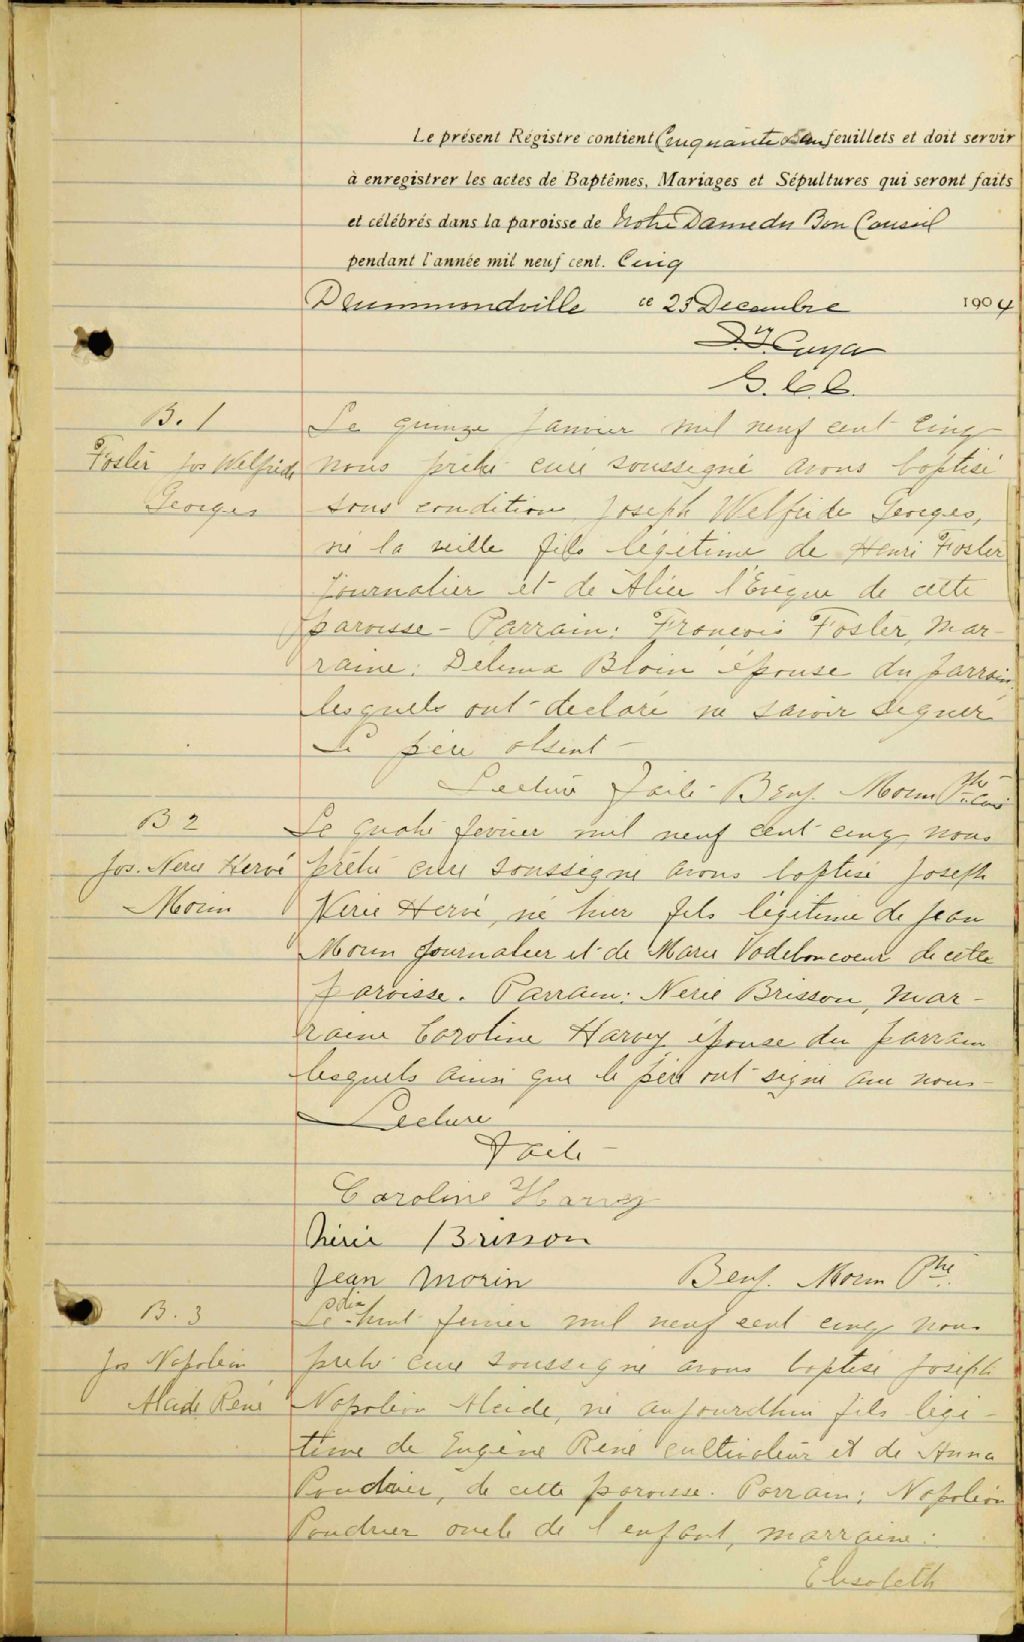 Le présent Régistre contient Cinquante feuillets et doit servir
à enregistrer les actes de Baptêmes, Mariages et Sépultures qui seront faits
et célébrés dans la paroisse de Notre Dame du Bon Conseil
pendant l'année mil neuf cent. Cinq
Drummondville ce 23 Decembre 1904
G. C. C.
B. 1
Foster Jos Welfride
Georges
Le quinze Janvier mil neuf cent cinq
nous prêtre curé soussigné avons baptisé
sous condition Joseph Welfride Georges,
né la veille fils légitime de Henri Foster
journalier et de Alice l'Evèque de cette
paroisse - Parrain: François Foster, mar-
raine: Délima Bloin épouse du parrain,
lesquels ont déclaré ne savoir signer
Le père absent -
Lecture faite - Benj. Morin Ptre curé
B 2
Jos. Nerie Hervé
Morin
Le quatre fevrier mil neuf cent cinq nous
prêtre curé soussigné avons baptisé Joseph
Nerie Hervé, né hier fils légitime de Jean
Morin journalier et de Marie Vadeboncoeur de cette
paroisse. Parrain: Nerie Brisson, mar-
raine Caroline Harvey épouse du parrain
lesquels ainsi que le père ont signé avec nous -
Lecture
faite -
Caroline Harvey
Nérie Brisson
Jean Morin Benj. Morin Ptre.
B. 3
Jos Napoléon
Alcide René
Le dix-huit fevrier mil neuf cent cinq nous
prêtre curé soussigné avons baptisé Joseph
Napoléon Alcide, né aujourdhui fils légi-
time de Eugène René cultivateur et de Anna
Poudrier, de cette paroisse. Parrain: Napoléon
Poudrier oncle de l enfant, marraine:
Elisabeth